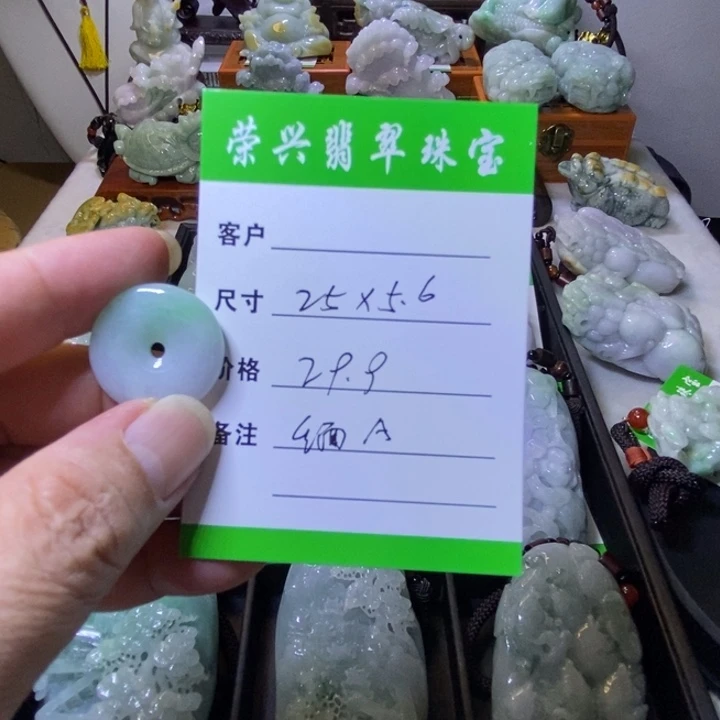 荣兴翡翠珠宝
客户
尺寸 25×5.6
价格 29.9
备注 缅A